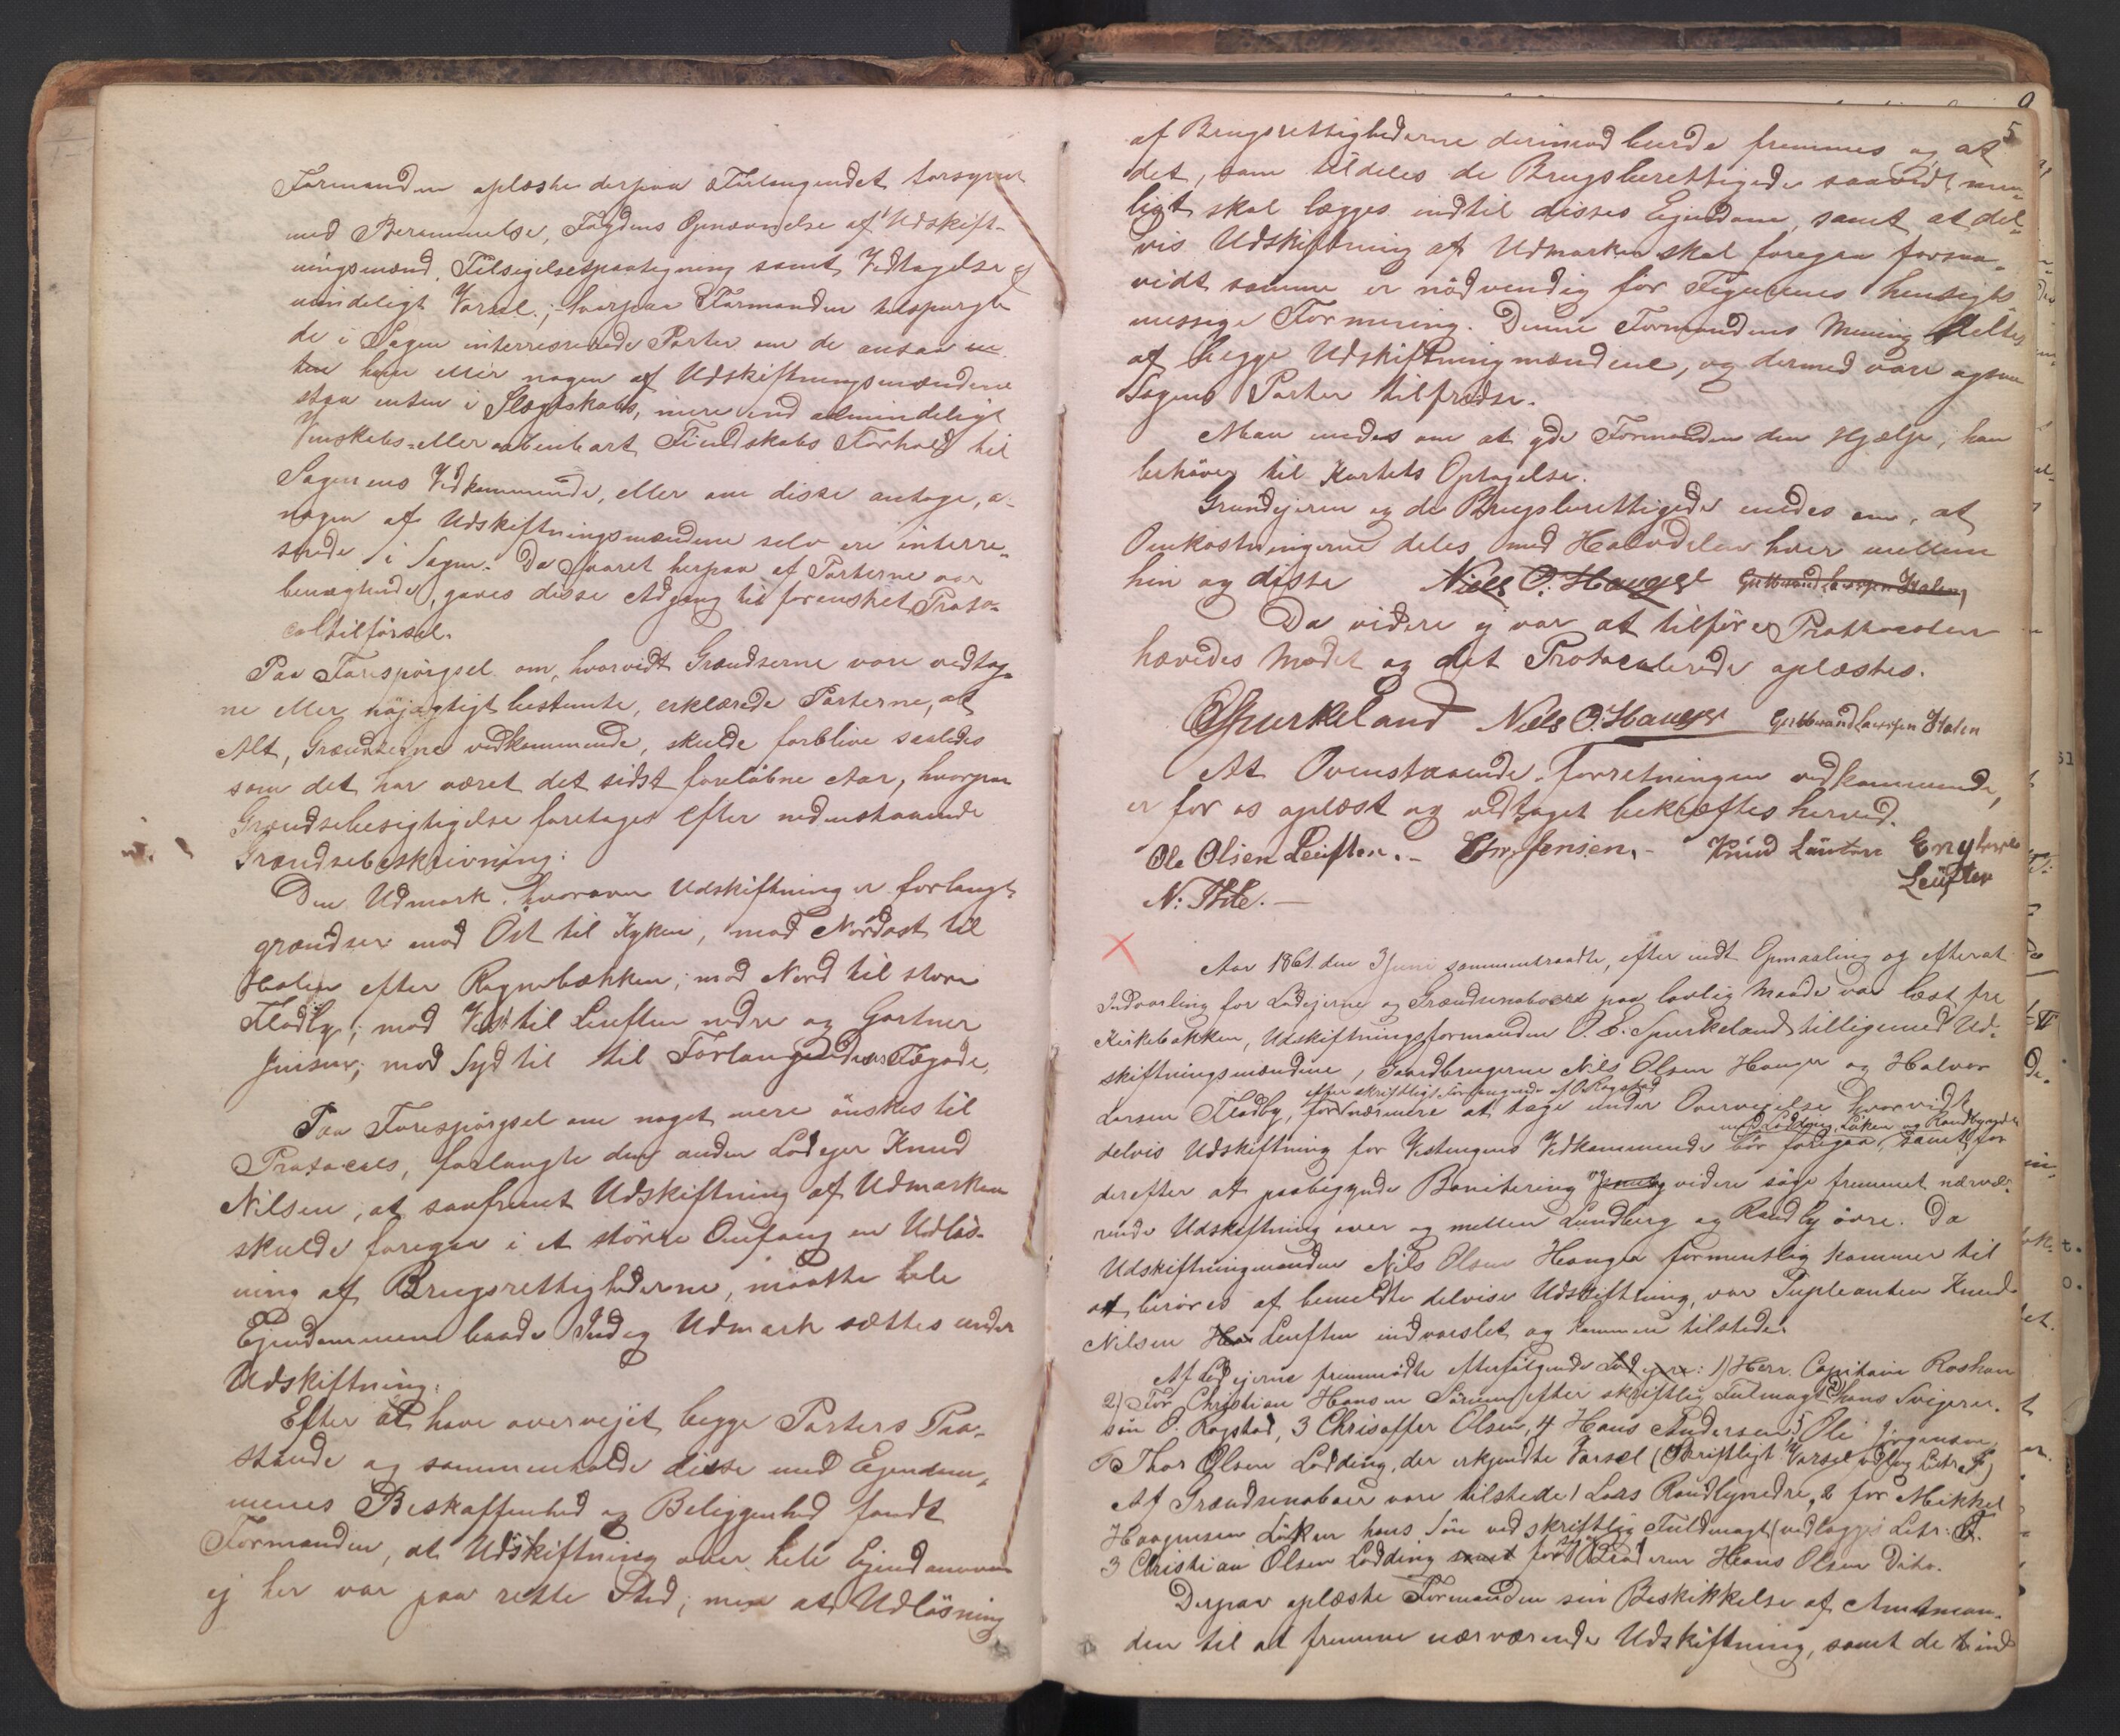 Formanden oplæste derpaa Forlangendet forsynet
med Berammelse, Fogdens Opnævnelse af Udskift-
ningsmænd, Tilsigelsespaategning samt Vedtagelse af
mindeligt Varsel; hvorpaa Formanden adspurgte
de i Sagen interresserede Parter om de ansaa en-
ten ham eller nogen af Udskiftningsmændene
staa enten i Slægtskabs, mere end almindeligt
Venskabs- eller aabenbart Fiendskabs Forhold til
Sagenens Vedkommende, eller om disse antage, at
nogen af Udskiftningsmændene selv ere interre-
serede i Sagen. Da Svaret herpaa af Parterne var
benægtende, gaves disse Adgang til forønsket Proto-
coltilførsel.
Paa Forespørgsel om, hvorvidt Grændserne vare vedtag-
ne eller nöjagtigt bestemte, erklærede Parterne, at
Alt, Grændserne vedkommende, skulde forblive saaledes
som det har været det sidst forløbne Aar, hvorpaa
Grændsebesigtigelse foretages efter nedenstaaende
Grændsebeskrivning:
Den Udmark, hvorover Udskiftning er forlangt
grændser mod Öst til Kyken, mod Nordost til
Holen efter Rognebækken; mod Nord til store
Fladby; mod Vest til Leuften nedre og Gartner
Jensen; mod Syd til til Forlangendes Jægode.
Paa Forespørgsel om noget mere önskes til
Protocols, forlangte den anden Lodejer Knud
Nilsen, at saafremt Udskiftning af Udmarken
skulde foregaa i et större Omfang en Udlös-
ning af Brugsrettighederne, maatte hele
Ejendommen baade Ind og Udmark sættes under
Udskiftning.
Efter at have overvejet begge Parters Paa-
stande og sammenholde disse med Ejendom-
menes Beskaffenhed og Beliggenhed fandt
Formanden, at Udskiftning over hele Ejendommen
ej her var paa rette Sted; men at Udlösning
5
af Brugsrettighederne derimod burde fremmes og at
det, som tildeles de Brugsberettigede saavidt mu-
ligt skal lægges indtil disses Ejendom, samt at del-
vis Udskiftning af Udmarken skal foregaa forsaa-
vidt samme er nödvendig for Figurenes hensigts
messige Formering. Denne Formandens Mening deltes
af begge Udskiftningmændene, og dermed vare ogsaa
Sagens Parter tilfredse.
Man enedes om at yde Formanden den Hjælp, han
behöver til Kartets Optagelse.
Grundejeren og de Brugsberettigede enedes om, at
Omkostningerne deles med Halvdelen hver mellem
hin og disse Niels O. Hauger Guttorm Larssen Holen
Da videre ej var at tilföre Prothocolen
hævedes Mødet og det Protocolerede oplæstes.
O Spurkeland Niels O. Hauger Guttorm Larssen Holen
At Ovenstaaende Forretningen vedkommende,
er for os oplæst og vedtaget bekræftes herved.
Ole Olsen Leuften.- Chr. Jensen.- Knud Leuten Engebret
Leuften
N: Thle.-
Aar 1861 den 3 Juni sammentraadte, efter endt Opmaaling og efterat
Indvarsling for Lodejerne og Grændsenaboer paa lovlig Maade var læst fra
Kirkebakken, Udskiftningsformanden O. E. Spurkeland tilligemed Ud-
skiftningsmændene, Gaardbrugerne Nils Olsen Hauger og Halvor
efter skriftligt Forlangende af O. Rogstad
Larsen Fladby, for nærmere at tage under Overvejelse hvorvidt
med Lodding, Löken og Randby nedre
delvis Udskiftning for Vestengens Vedkommende bör foregaa, samt for
derefter at paabegynde Bonitering og videre söge fremmet nærvæ-
rende Udskiftning over og mellem Lundberg og Randby övre. Da
Udskiftningmanden Nils Olsen Hauger formentlig kommer til
at beröres af bemeldte delvise Udskiftning, var Supleanten Knud
Nilsen Leuften indvarslet og kommen tilstede.
Af Lodejerne fremmødte efterfölgende Lodejere: 1) Herr. Capitain Roshaw
2) For Christian Hansen Sörum efter skriftlig Fulmagt hans Svigersö-
sön O. Rogstad, 3 Chrisoffer Olsen, 4 Hans Andersen 5 Ole Jörgensen,
6 Thor Olsen Lodding, der erkjendte Varsel (Skriftligt Varsel vedlag Litr. )
Af Grændsenaboer vare tilstede 1 Lars Randbynedre, 2 for Mikkel
Haagensen Löken hans Sön ved skriftlig Fuldmagt (vedlægges Litr:
3 Christian Olsen Lodding samt for Broderen Hans Olsen Dito.
Derpaa oplæste Formanden sin Beskikkelse af Amtman-
den til at fremme nærværende Udskiftning, samt de tvind